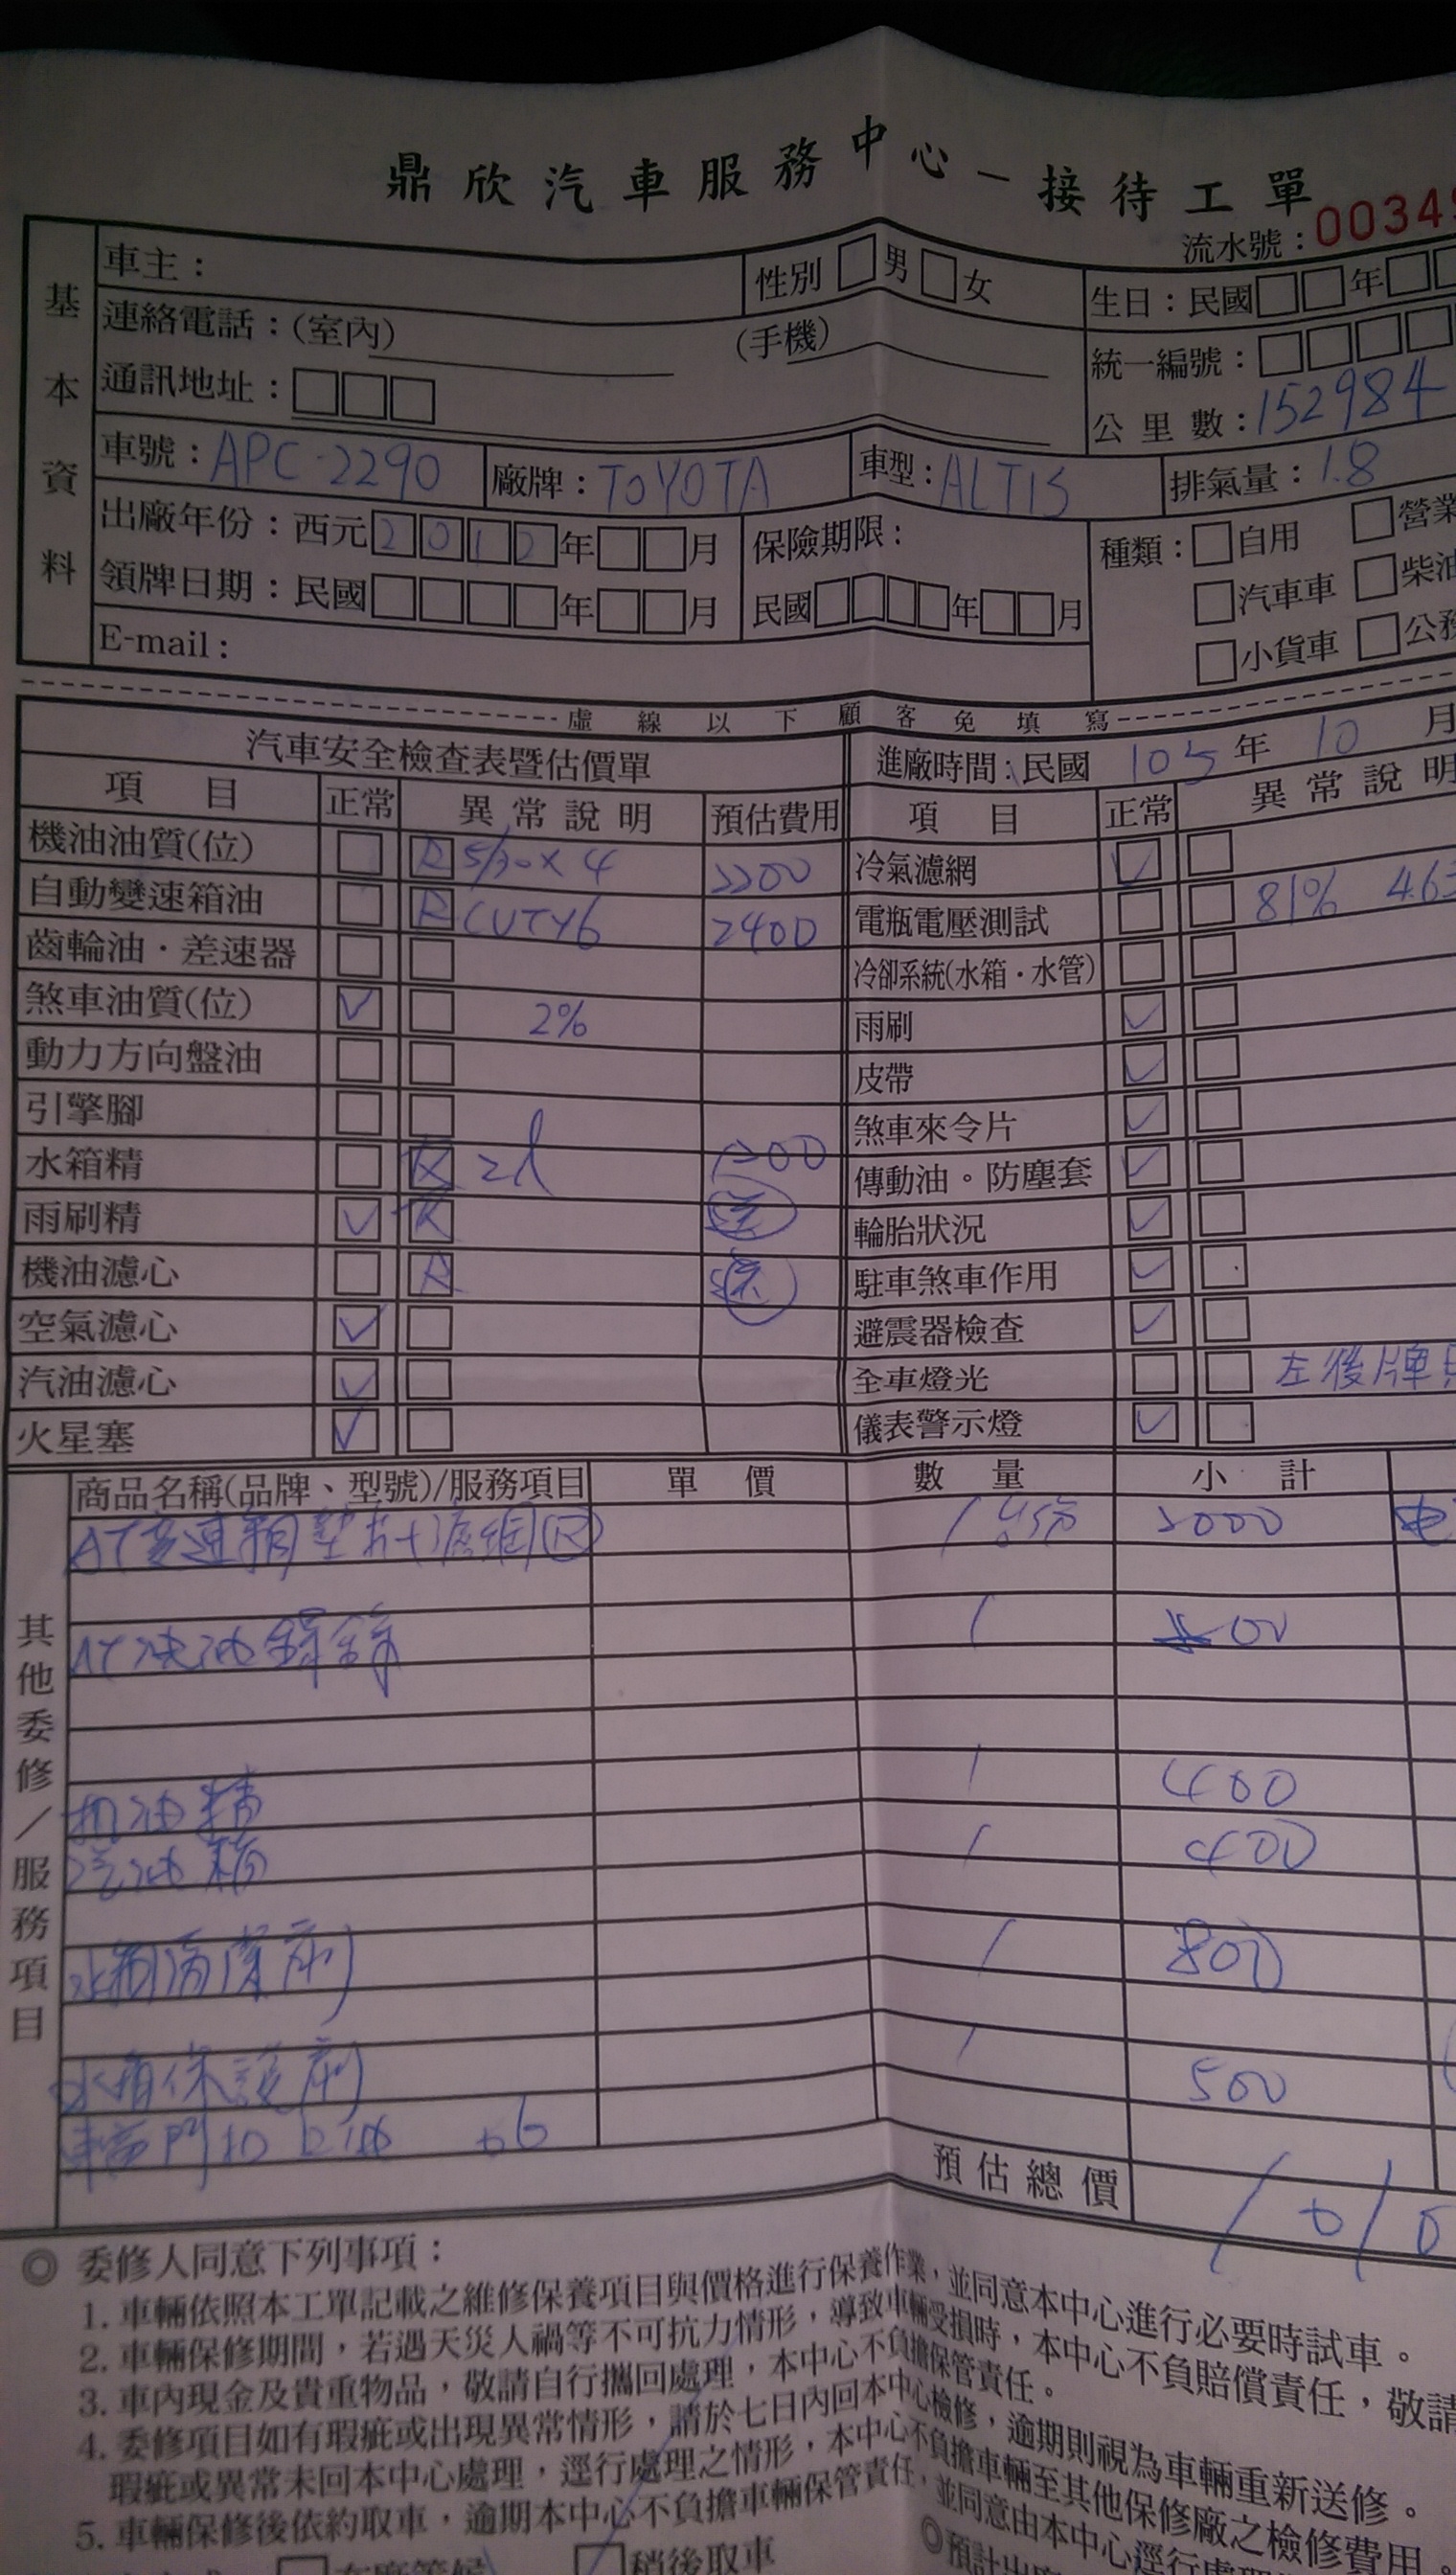 鼎欣汽車服務中心－接待工單
流水號：0034
基本資料
車主：
性別 □男 □女
生日：民國□□年□□
連絡電話：(室內) (手機)
統一編號：□□□□
通訊地址：□□□
公里數：152984
車號：APC-2290 廠牌：TOYOTA 車型：ALTIS 排氣量：1.8
出廠年份：西元2012年□□月 保險期限：
種類：□自用 □營業
領牌日期：民國□□□□年□□月 民國□□□□年□□月
□汽車車 □柴油
E-mail：
□小貨車 □公務
虛線以下顧客免填寫
汽車安全檢查表暨估價單 進廠時間：民國 105 年 10 月
項目 正常 異常說明 預估費用 項目 正常 異常說明
機油油質(位) □ R 5/30×4 2200 冷氣濾網 ✓ □
自動變速箱油 □ R 2400 電瓶電壓測試 □ □ 81%
齒輪油．差速器 □ □ 冷卻系統(水箱．水管) □ □
煞車油質(位) ✓ □ 2% 雨刷 ✓ □
動力方向盤油 □ □ 皮帶 ✓ □
引擎腳 □ □ 煞車來令片 ✓ □
水箱精 □ R 2l 1200 傳動油。防塵套 ✓ □
雨刷精 ✓ R 送 輪胎狀況 ✓ □
機油濾心 □ R 送 駐車煞車作用 ✓ □
空氣濾心 ✓ □ 避震器檢查 ✓ □
汽油濾心 ✓ □ 全車燈光 □ □ 左後牌
火星塞 ✓ □ 儀表警示燈 ✓ □
其他委修／服務項目
商品名稱(品牌、型號)/服務項目 單價 數量 小計
AT變速箱墊片+濾網Ⓡ 1 2000
AT洩油螺絲 1
機油精 1 400
汽油精 1 400
水箱清潔劑 1 800
水箱保護劑 1 500
預估總價
◎ 委修人同意下列事項：
1. 車輛依照本工單記載之維修保養項目與價格進行保養作業，並同意本中心進行必要時試車。
2. 車輛保修期間，若遇天災人禍等不可抗力情形，導致車輛受損時，本中心不負賠償責任，敬請
3. 車內現金及貴重物品，敬請自行攜回處理，本中心不負擔保管責任。
4. 委修項目如有瑕疵或出現異常情形，請於七日內回本中心檢修，逾期則視為車輛重新送修。
瑕疵或異常未回本中心處理，逕行處理之情形，本中心不負擔車輛至其他保修廠之檢修費用
5. 車輛保修後依約取車，逾期本中心不負擔車輛保管責任，並同意由本中心逕行處
□在廠等候 □稍後取車 ◎預計出